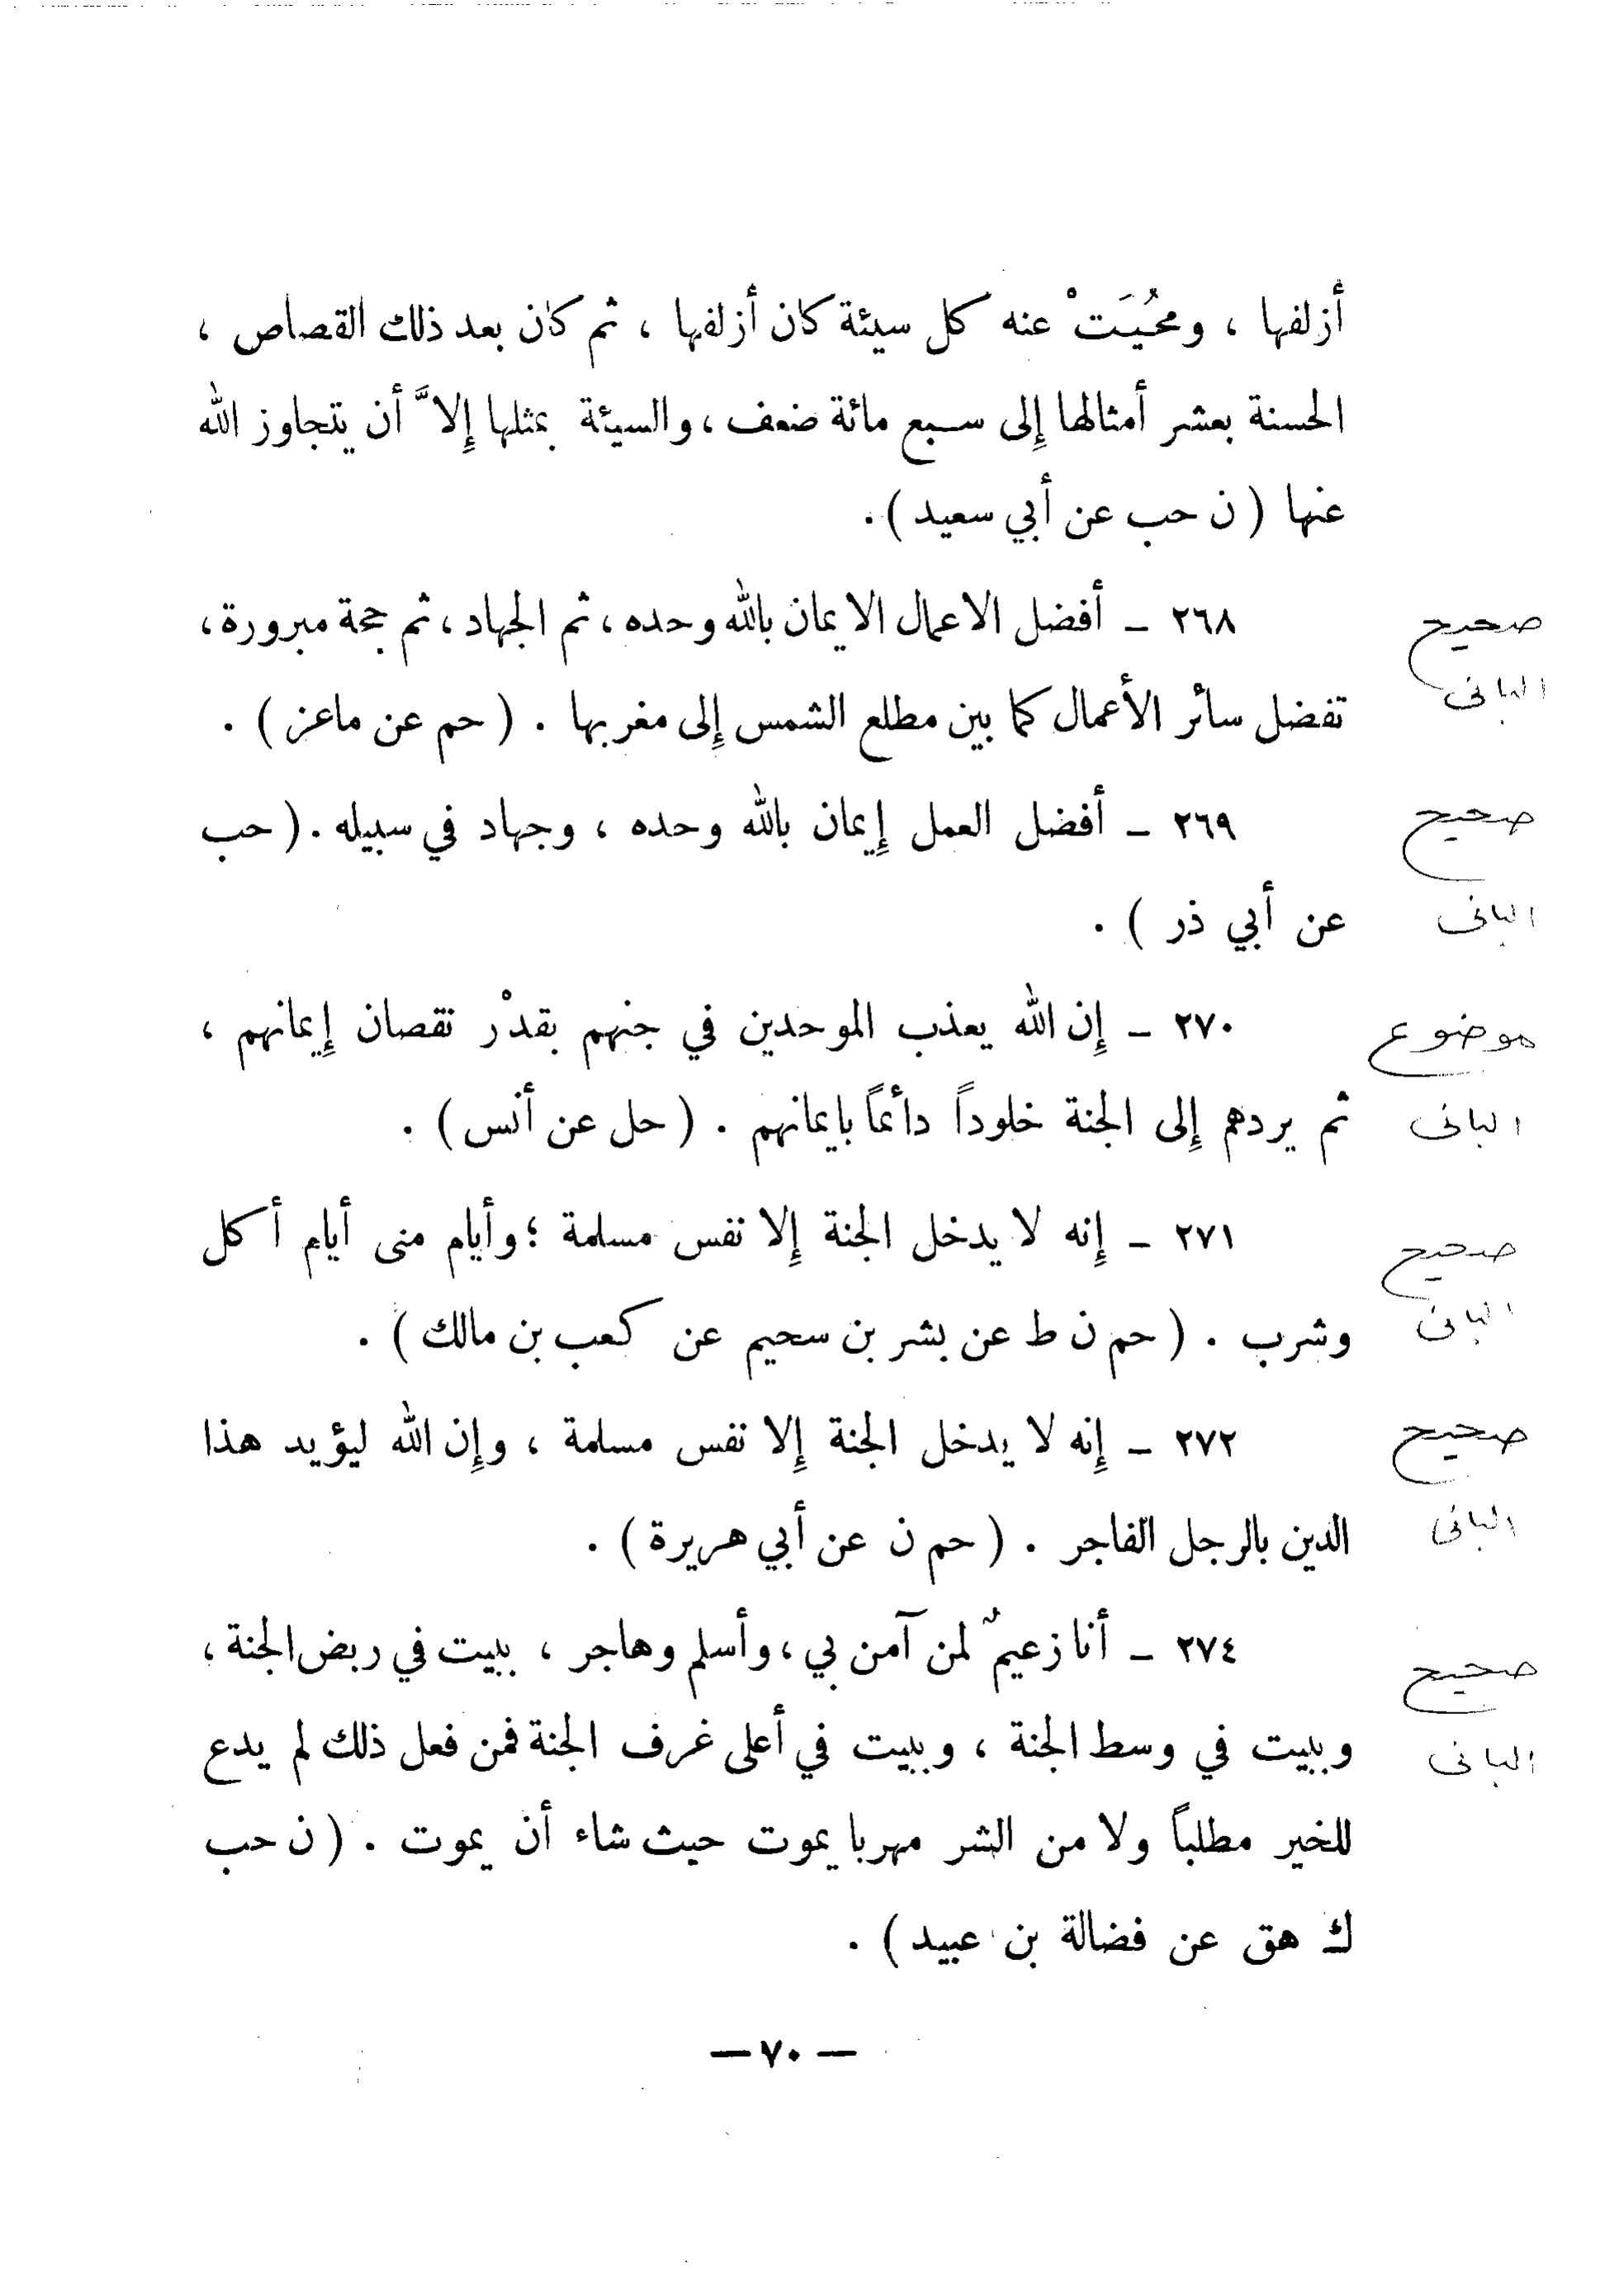 أزلفها ، ومحُيَتْ عنه كل سيئة كان أزلفها ، ثم كان بعد ذلك القصاص ،
الحسنة بعشر أمثالها إِلى سبع مائة ضعف ، والسيئة بمثلها إِلاَّ أن يتجاوز الله
عنها ( ن حب عن أبي سعيد ) .
٢٦٨ - أفضل الاعمال الايمان بالله وحده ، ثم الجهاد ، ثم حجة مبرورة ،
صحيح
تفضل سائر الأعمال كما بين مطلع الشمس إِلى مغربها . ( حم عن ماعز ) .
البانى
٢٦٩ - أفضل العمل إِيمان بالله وحده ، وجهاد في سبيله . ( حب
صحيح
عن أبي ذر ) .
البانى
٢٧٠ - إِن الله يعذب الموحدين في جنهم بقدْر نقصان إِيمانهم ،
موضوع
ثم يردهم إِلى الجنة خلوداً دائماً بإيمانهم . ( حل عن أنس ) .
البانى
٢٧١ - إِنه لا يدخل الجنة إِلا نفس مسلمة ؛ وأيام منى أيام أكل
صحيح
وشرب . ( حم ن ط عن بشر بن سحيم عن كعب بن مالك ) .
البانى
٢٧٢ - إِنه لا يدخل الجنة إِلا نفس مسلمة ، وإِن الله ليؤيد هذا
صحيح
الدين بالرجل الفاجر . ( حم ن عن أبي هريرة ) .
البانى
٢٧٤ - أنا زعيمٌ لمن آمن بي ، وأسلم وهاجر ، ببيت في ربض الجنة ،
صحيح
وببيت في وسط الجنة ، وببيت في أعلى غرف الجنة فمن فعل ذلك لم يدع
البانى
للخير مطلباً ولا من الشر مهربا يموت حيث شاء أن يموت . ( ن حب
ك هق عن فضالة بن عبيد ) .
— ٧٠ —